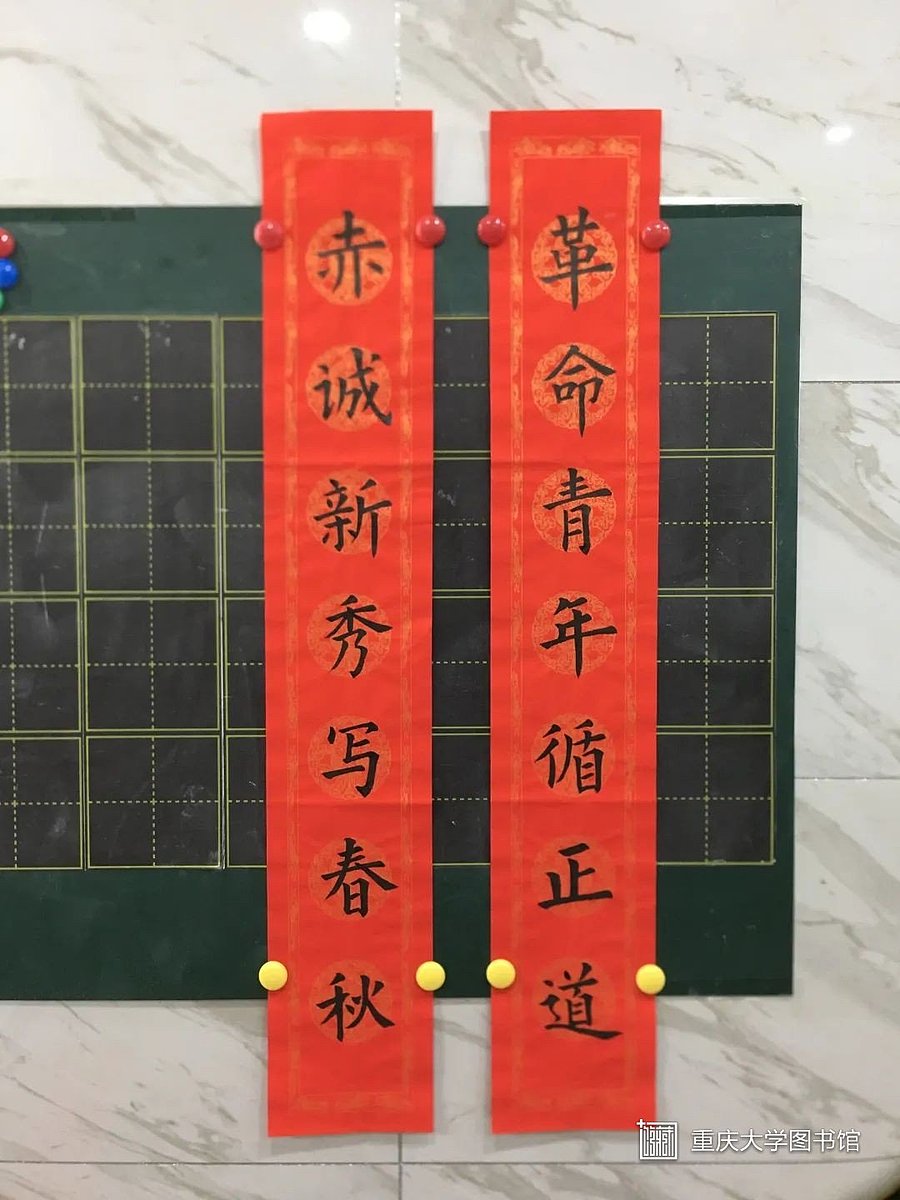 革命青年循正道
赤诚新秀写春秋
重庆大学图书馆